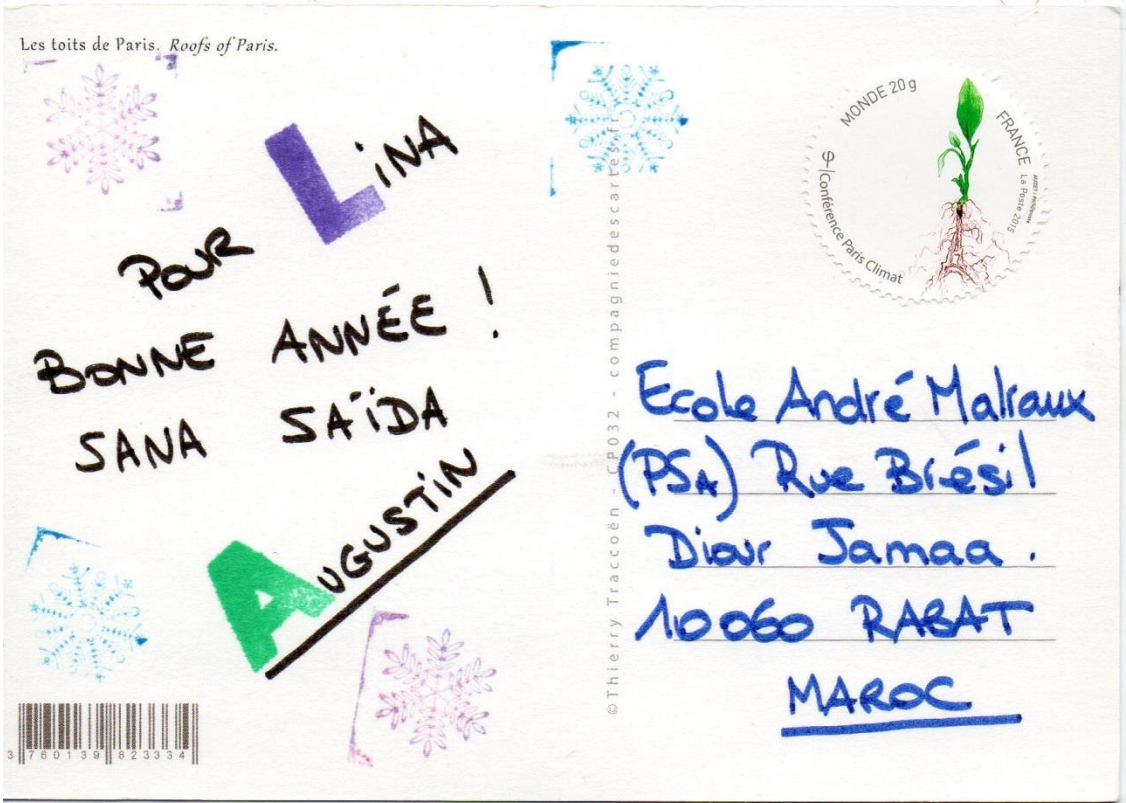 Les toits de Paris. Roofs of Paris.
POUR LiNA
BONNE ANNÉE !
SANA SAÏDA
AUGUSTiN
3 760139 823334
©Thierry Traccoën - CP032 - compagniedescartes.fr
MONDE 20g
FRANCE La Poste 2015
Conférence Paris Climat
Ecole André Malraux
(PSA) Rue Brésil
Diour Jamaa.
10060 RABAT
MAROC